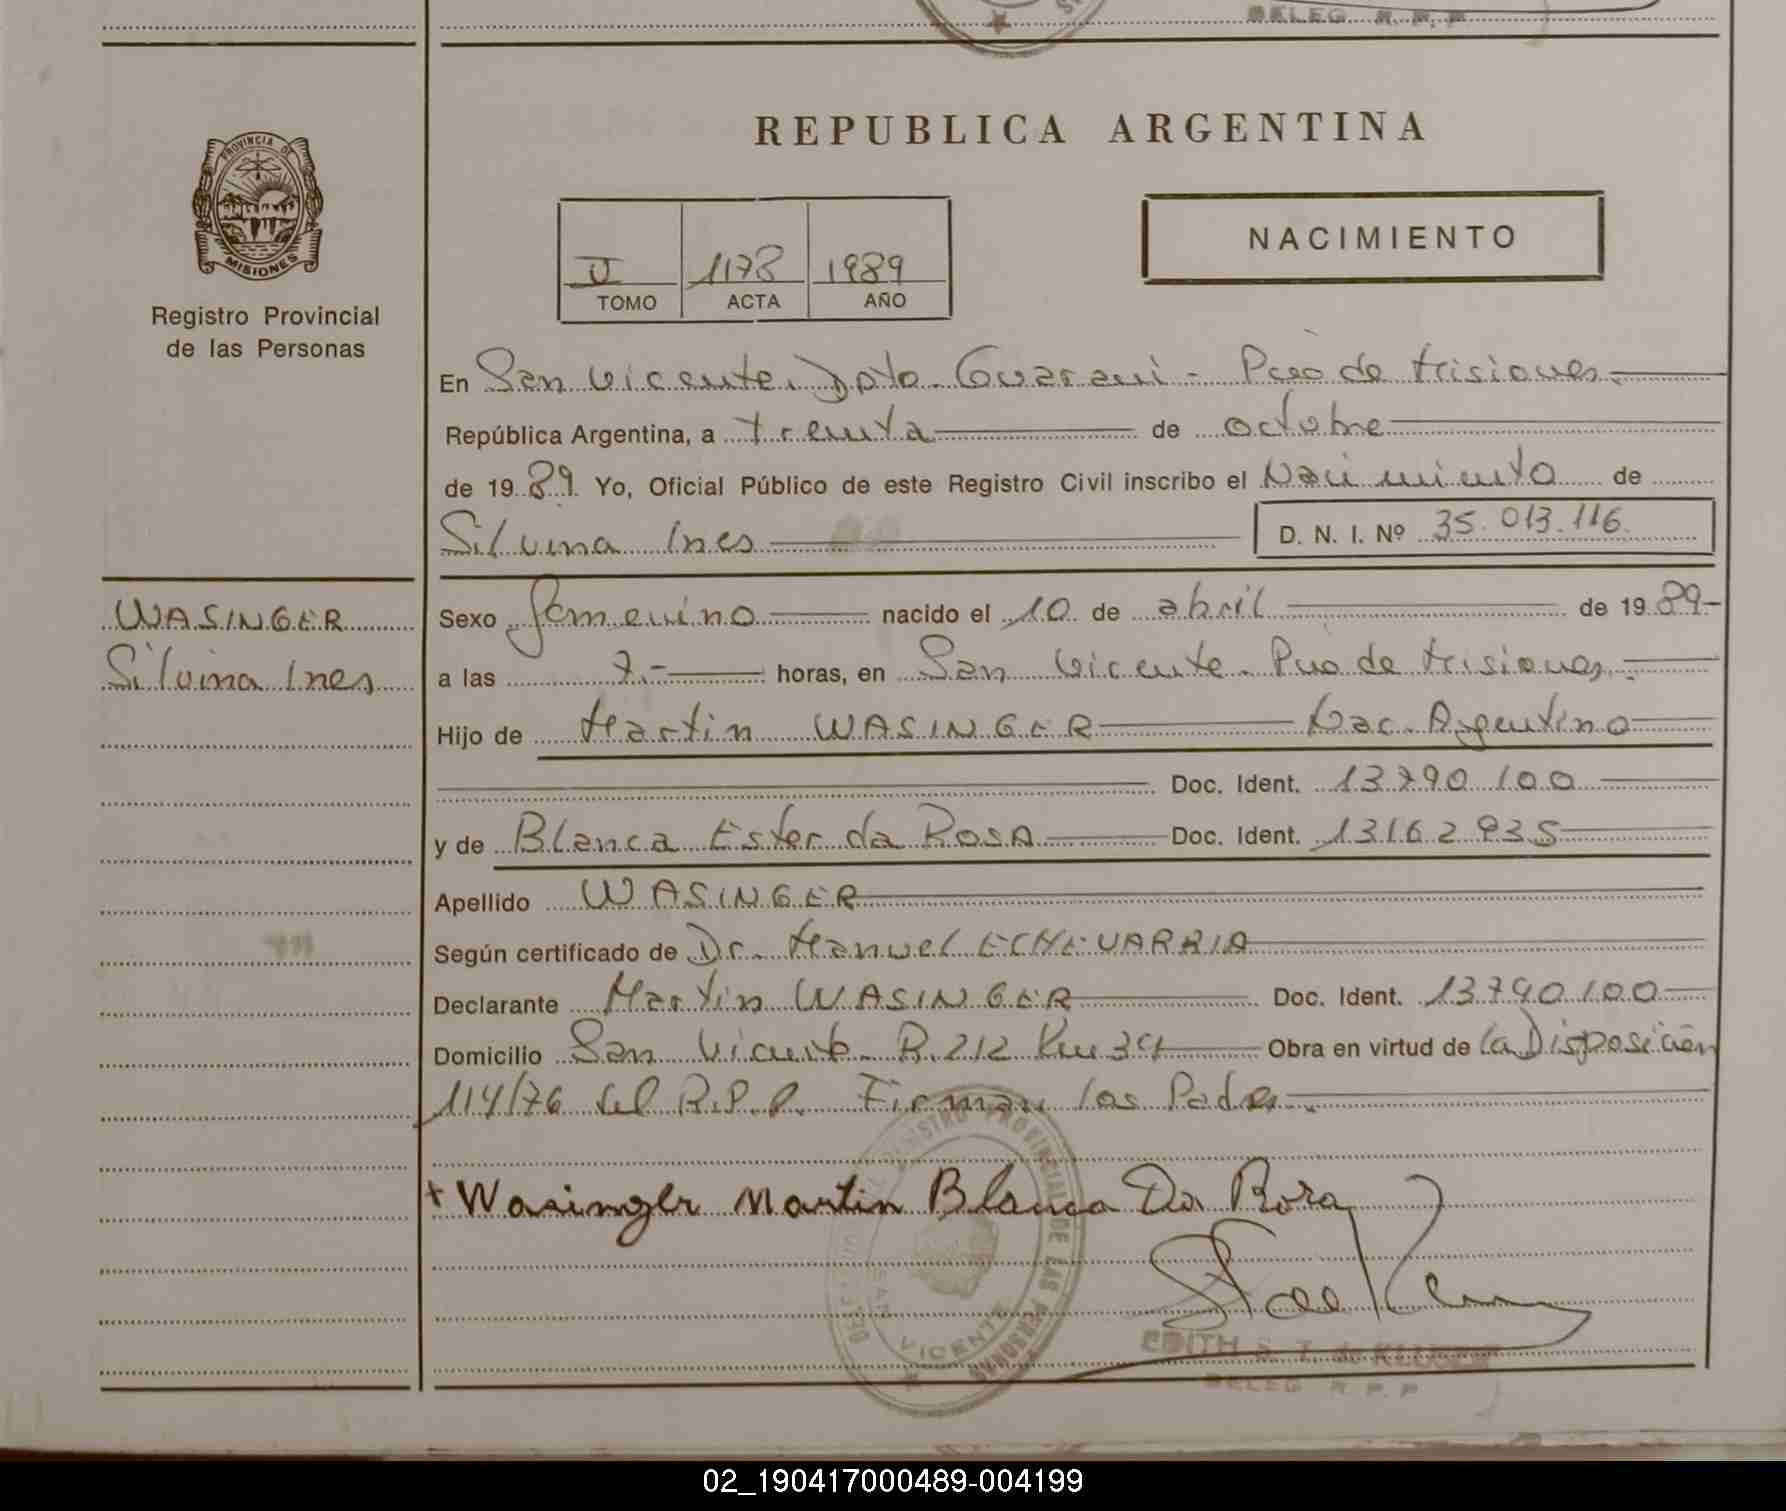 DELEG. R. P. P.
REPUBLICA ARGENTINA
PROVINCIA DE
MISIONES
Registro Provincial
de las Personas
NACIMIENTO
II 1178 1989
TOMO ACTA AÑO
En San Vicente. Dpto. Guarani - Pcia de Misiones.
República Argentina, a treinta de octubre
de 1989 Yo, Oficial Público de este Registro Civil inscribo el Nacimiento de
Silvina Ines D. N. I. Nº 35.013.116.
WASINGER
Silvina Ines
Sexo femenino nacido el 10 de abril de 1989-
a las 7.- horas, en San Vicente. Pcia de Misiones.
Hijo de Martin WASINGER Nac. Argentino
Doc. Ident. 13790100
y de Blanca Ester da ROSA Doc. Ident. 13162935
Apellido WASINGER
Según certificado de Dr. Manuel ECHEVARRIA
Declarante Martin WASINGER Doc. Ident. 13790100
Domicilio San Vicente. R.212 Km 34 Obra en virtud de la Disposición
114/76 del R.P.P. Firman los Padres.
+ Wasinger Martin Blanca Da Rosa
REGISTRO PROVINCIAL DE LAS PERSONAS
SAN VICENTE
EDITH S. T. de KLUGE
DELEG. R. P. P
02_190417000489-004199